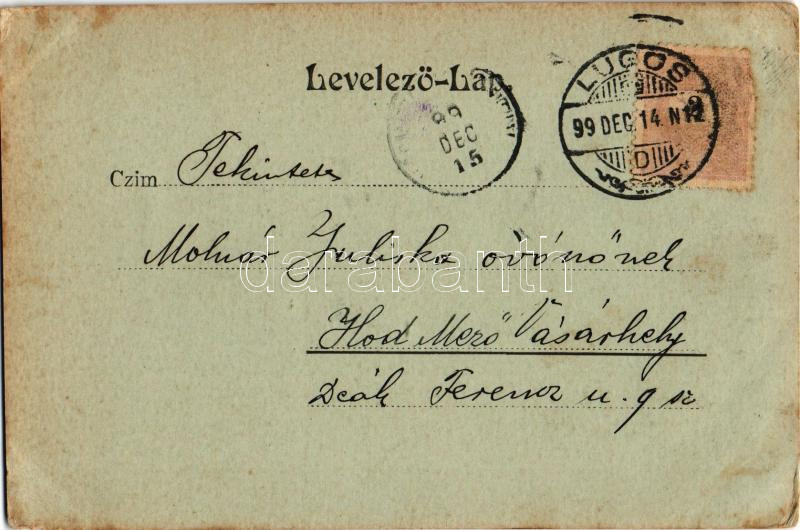 Levelező-Lap.
LUGOS
99 DEC. 14. N12
D
99
DEC
15
Czim Tekintetes
Molnár Juliska óvónőnek
darabanth
Hod Mező Vásárhely
Deák Ferencz u. 9 sz